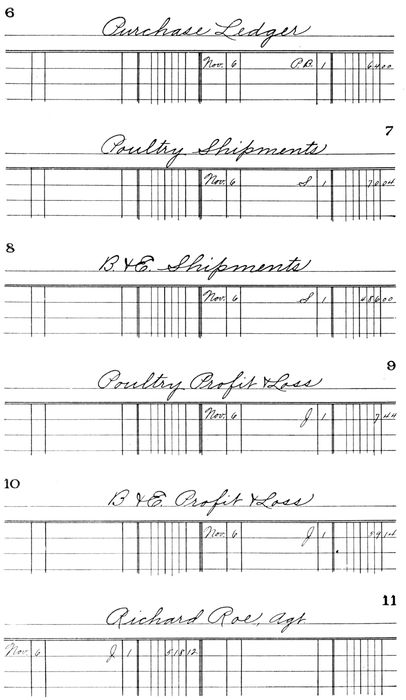 6
Purchase Ledger
Nov. 6 P.B. 1 64 00
7
Poultry Shipments
Nov. 6 S 1 70 04
8
B. & E. Shipments
Nov. 6 S 1 486 00
9
Poultry Profit & Loss
Nov. 6 J 1 7 44
10
B & E. Profit & Loss
Nov. 6 J 1
11
Richard Roe, Agt.
Nov. 6 J 1 518 12